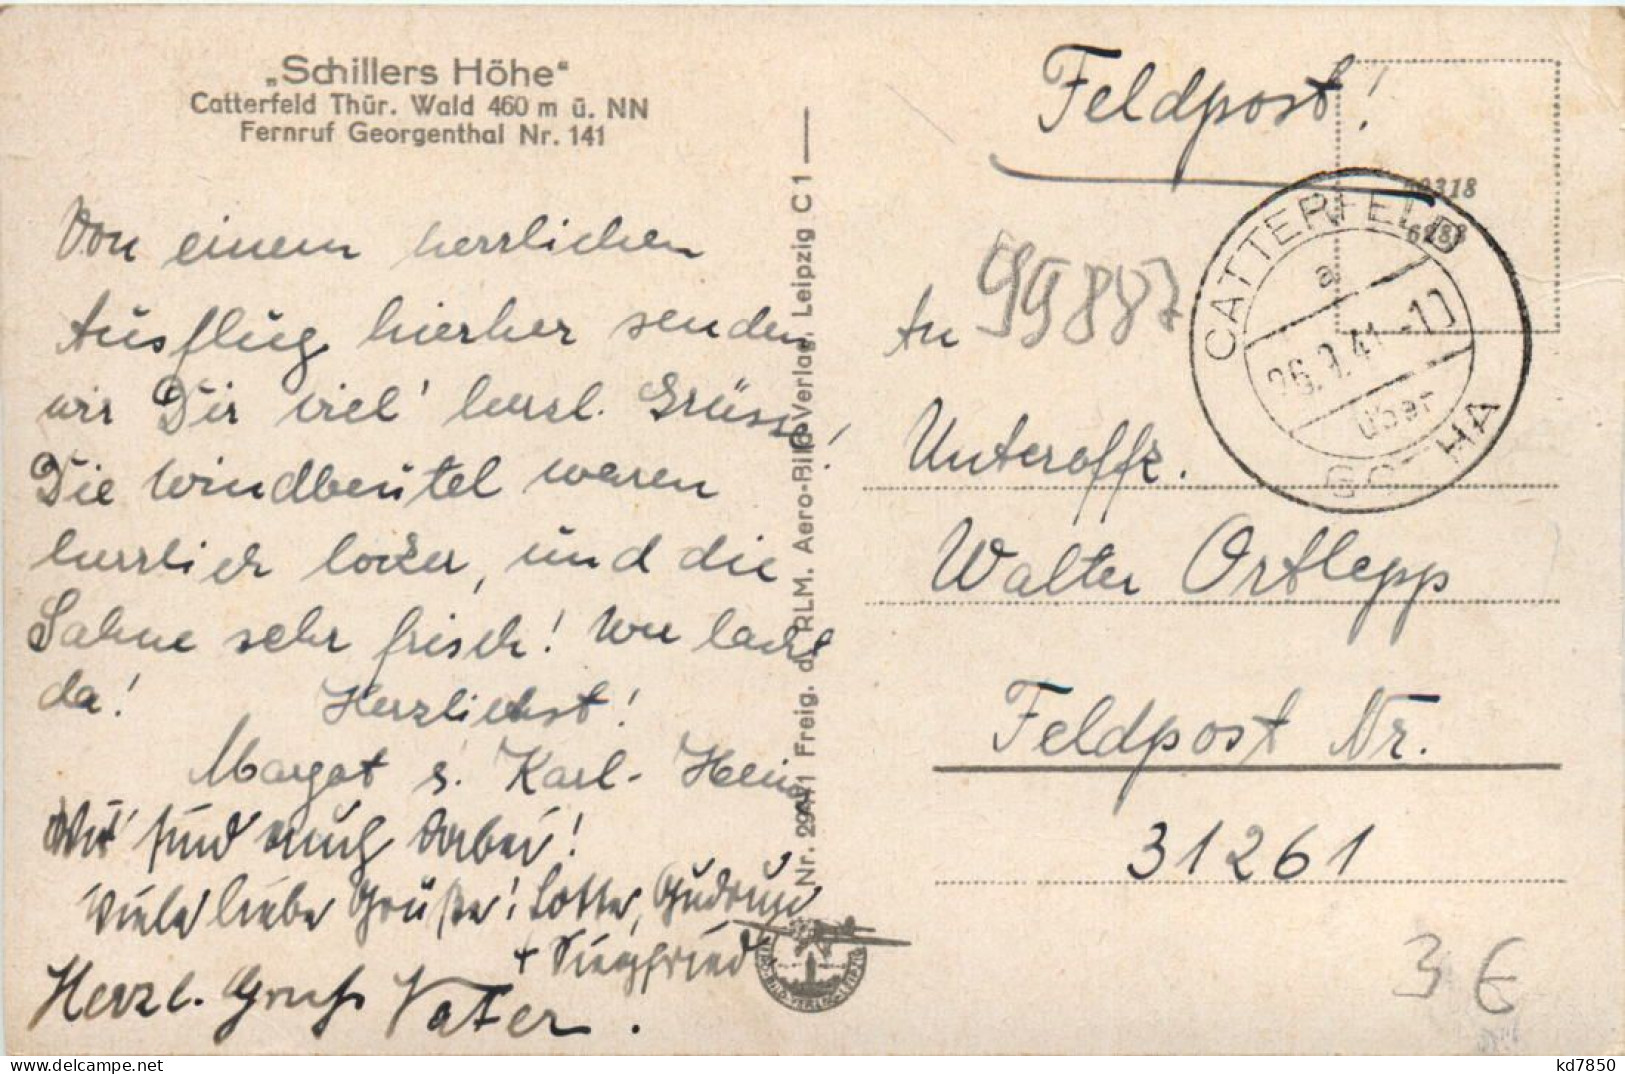 „Schillers Höhe“
Catterfeld Thür. Wald 460 m ü. NN
Fernruf Georgenthal Nr. 141
Von einem herrlichen
Ausflug hierher senden
wir Dir viel' herzl. Grüsse!
Die Windbeutel waren
herrlich locker, und die
Sahne sehr frisch! Wer lacht
da! Herzlichst!
Margot u. Karl-Heinz
Wir sind auch dabei!
Viele liebe Grüße! Lotte, Gudrun
+ Siegfried
Herzl. Gruß Vater.
Freig. d. RLM. Aero-Bild-Verlag, Leipzig C 1
AERO-BILD-VERLAG LEIPZIG
Feldpost!
318
CATTERFELD
a
26.9.41.-10
über
GOTHA
An 99887
Unteroffz.
Walter Ortlepp
Feldpost Nr.
31261
3 €
kd7850